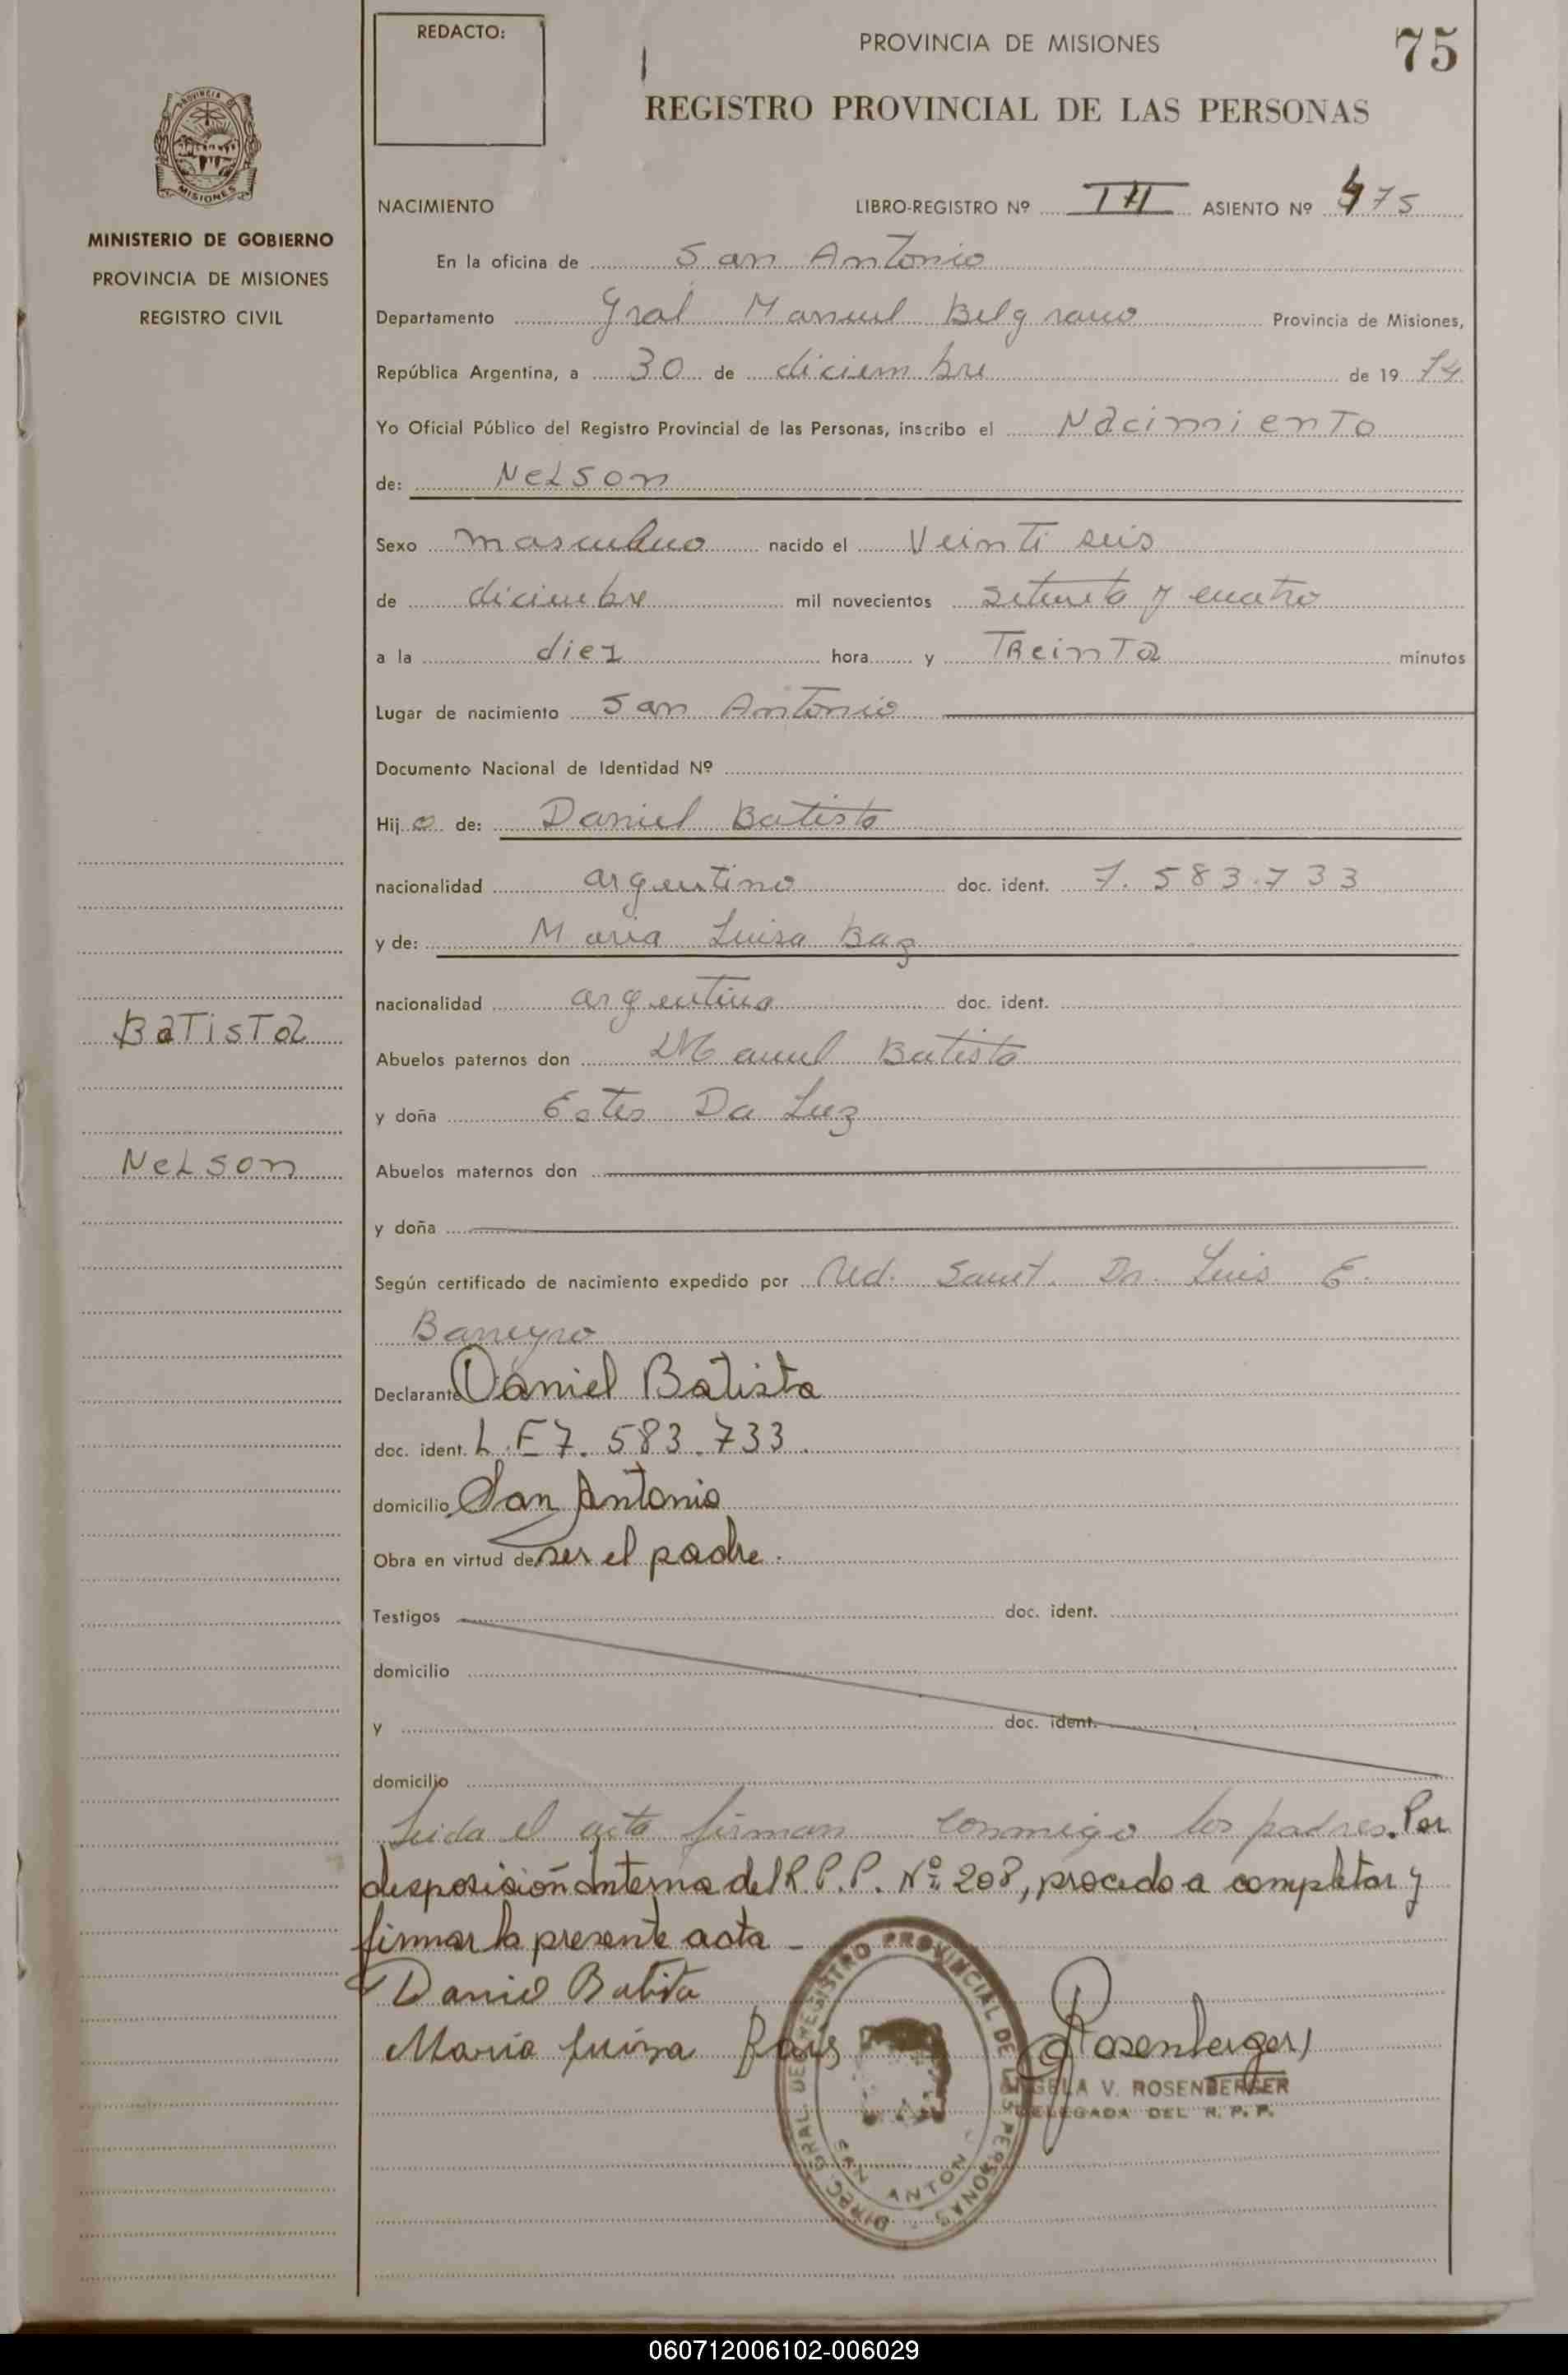 REDACTO:
PROVINCIA DE MISIONES
75
REGISTRO PROVINCIAL DE LAS PERSONAS
PROVINCIA DE
MISIONES
MINISTERIO DE GOBIERNO
PROVINCIA DE MISIONES
REGISTRO CIVIL
NACIMIENTO LIBRO-REGISTRO Nº III ASIENTO Nº 475
En la oficina de San Antonio
Departamento Gral Manuel Belgrano Provincia de Misiones,
República Argentina, a 30 de diciembre de 1974
Yo Oficial Público del Registro Provincial de las Personas, inscribo el Nacimiento
de: Nelson
Sexo masculino nacido el Veinti seis
de diciembre mil novecientos setenta y cuatro
a la diez hora y Treinta minutos
Lugar de nacimiento San Antonio
Documento Nacional de Identidad Nº
Hijo de: Daniel Batista
nacionalidad argentino doc. ident. 7.583.733
y de: Maria Luisa Baz
nacionalidad argentina doc. ident.
Batista
Abuelos paternos don Manuel Batista
y doña Ester Da Luz
Nelson
Abuelos maternos don
y doña
Según certificado de nacimiento expedido por Med. Sanit. Dr. Luis E.
Barreyro
Declarante Daniel Batista
doc. ident. L.E 7.583.733.
domicilio San Antonio
Obra en virtud de ser el padre.
Testigos doc. ident.
domicilio
y doc. ident.
domicilio
Leida el acta firman conmigo los padres. Por
disposición interna del R.P.P. Nº 208, procedo a completar y
firmar la presente acta -
Daniel Batista
Maria Luiza Rosenberger
ANGELA V. ROSENBERGER
DELEGADA DEL R. P. P.
DIREC. GRAL. DEL REGISTRO PROVINCIAL DE LAS PERSONAS
SAN ANTONIO
060712006102-006029